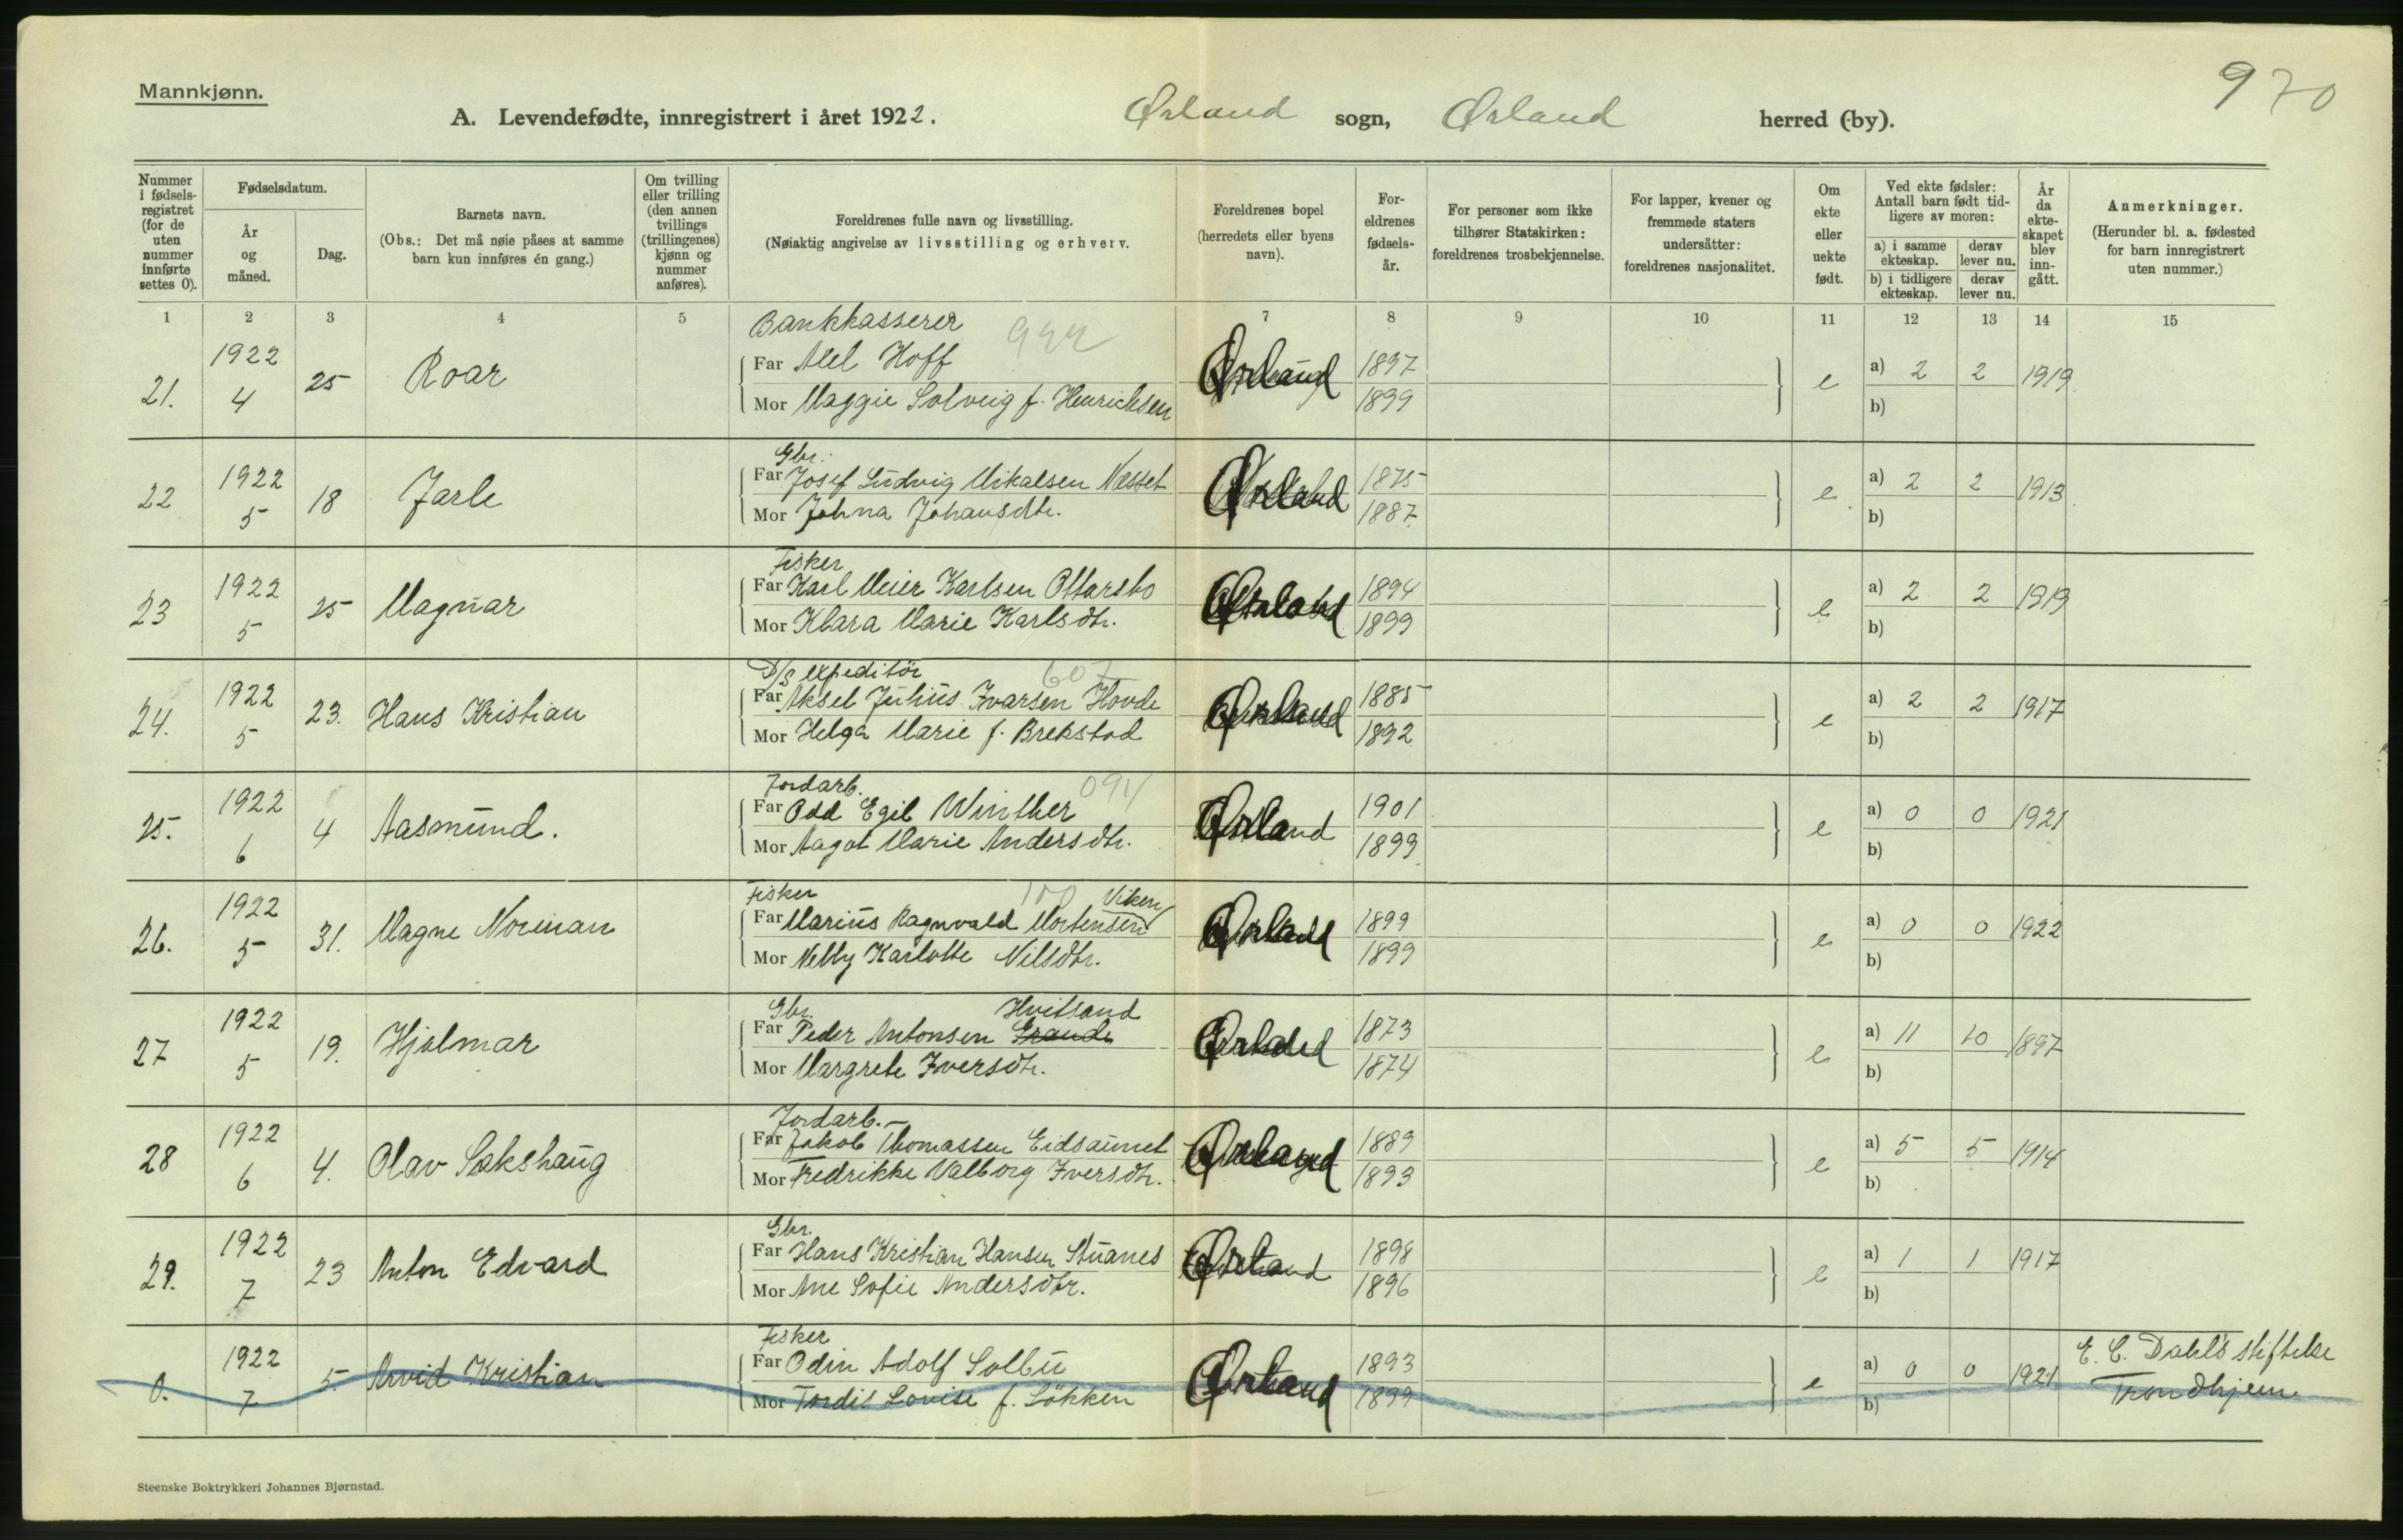 Mannkjønn.
970
A. Levendefødte, innregistrert i året 1922. Ørland sogn, Ørland herred (by).
Nummer i fødsels-registret (for de uten nummer innførte settes 0).
Fødselsdatum.
År og måned.
Dag.
Barnets navn.
(Obs.: Det må nøie påses at samme barn kun innføres én gang.)
Om tvilling eller trilling (den annen tvillings (trillingenes) kjønn og nummer anføres).
Foreldrenes fulle navn og livsstilling.
(Nøiaktig angivelse av livsstilling og erhverv.
Foreldrenes bopel (herredets eller byens navn).
For-eldrenes fødsels-år.
For personer som ikke tilhører Statskirken: foreldrenes trosbekjennelse.
For lapper, kvener og fremmede staters undersåtter: foreldrenes nasjonalitet.
Om ekte eller uekte født.
Ved ekte fødsler: Antall barn født tid-ligere av moren:
a) i samme ekteskap.
derav lever nu.
b) i tidligere ekteskap.
derav lever nu.
År da ekte-skapet blev inn-gått.
Anmerkninger.
(Herunder bl. a. fødested for barn innregistrert uten nummer.)
1 2 3 4 5 7 8 9 10 11 12 13 14 15
Bankkasserer 922
21. 1922 4 25 Roar
Far Alel Hoff Ørland 1897
Mor Maggie Solveig f. Henriksen 1899
e a) 2 2 1919
b)
Gbr.
22 1922 5 18 Jarle
Far Josef Ludvig Mikalsen Næsset Ørland 1875
Mor Johna Johansdtr. 1887
e a) 2 2 1913
b)
Fisker
23 1922 5 25 Magnar
Far Karl Meier Karlsen Ottarsbo Ørland 1894
Mor Klara Marie Karlsdtr. 1899
e a) 2 2 1919
b)
D/S expeditør 607
24. 1922 5 23. Hans Kristian
Far Aksel Julius Ivarsen Hovde Ørland 1885
Mor Helga Marie f. Brekstad 1892
e a) 2 2 1917
b)
Jordarb. 094
25. 1922 6 4 Aasmund.
Far Odd Egil Winther Ørland 1901
Mor Aagot Marie Andersdtr. 1899
e a) 0 0 1921
b)
Fisker 100 Viken
26. 1922 5 31. Magne Norman
Far Marius Ragnvald Mortensen Ørland 1899
Mor Nelly Karlotte Nilsdtr. 1899
e a) 0 0 1922
b)
Gbr. Hvitsand
27 1922 5 19. Hjalmar
Far Peder Antonsen Grande Ørland 1873
Mor Margrete Iversdtr. 1874
e a) 11 10 1897
b)
Jordarb.
28 1922 6 4. Olav Sakshaug
Far Jakob Thomassen Eidsaunet Ørland 1889
Mor Fredrikke Valborg Iversdtr. 1893
e a) 5 5 1914
b)
Gbr.
29. 1922 7 23 Anton Edvard
Far Hans Kristian Hansen Stuanes Ørland 1898
Mor Ane Sofie Andersdtr. 1896
e a) 1 1 1917
b)
Fisker
0. 1922 7 5. Arvid Kristian
Far Odin Adolf Solbu Ørland 1893
Mor Tordis Lovise f. Løkken 1899
e a) 0 0 1921 E. C. Dahls stiftelse
b) Trondhjem
Steenske Boktrykkeri Johannes Bjørnstad.